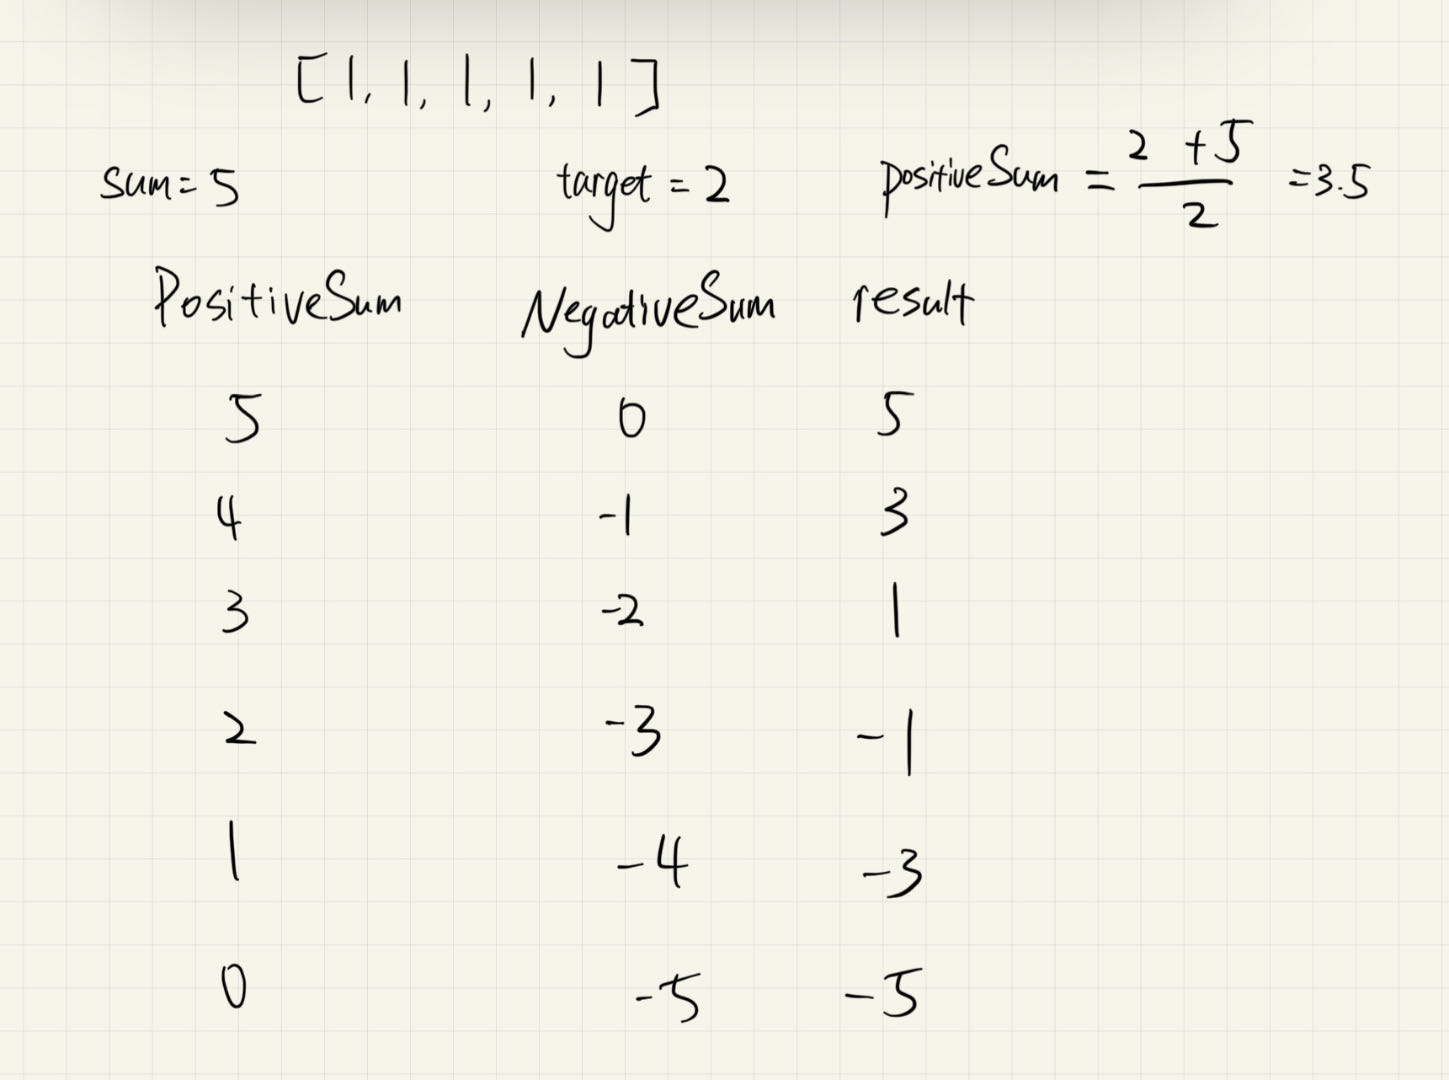 [1, 1, 1, 1, 1]
sum = 5 target = 2 positiveSum = 2 + 5 / 2 = 3.5
PositiveSum NegativeSum result
5 0 5
4 -1 3
3 -2 1
2 -3 -1
1 -4 -3
0 -5 -5